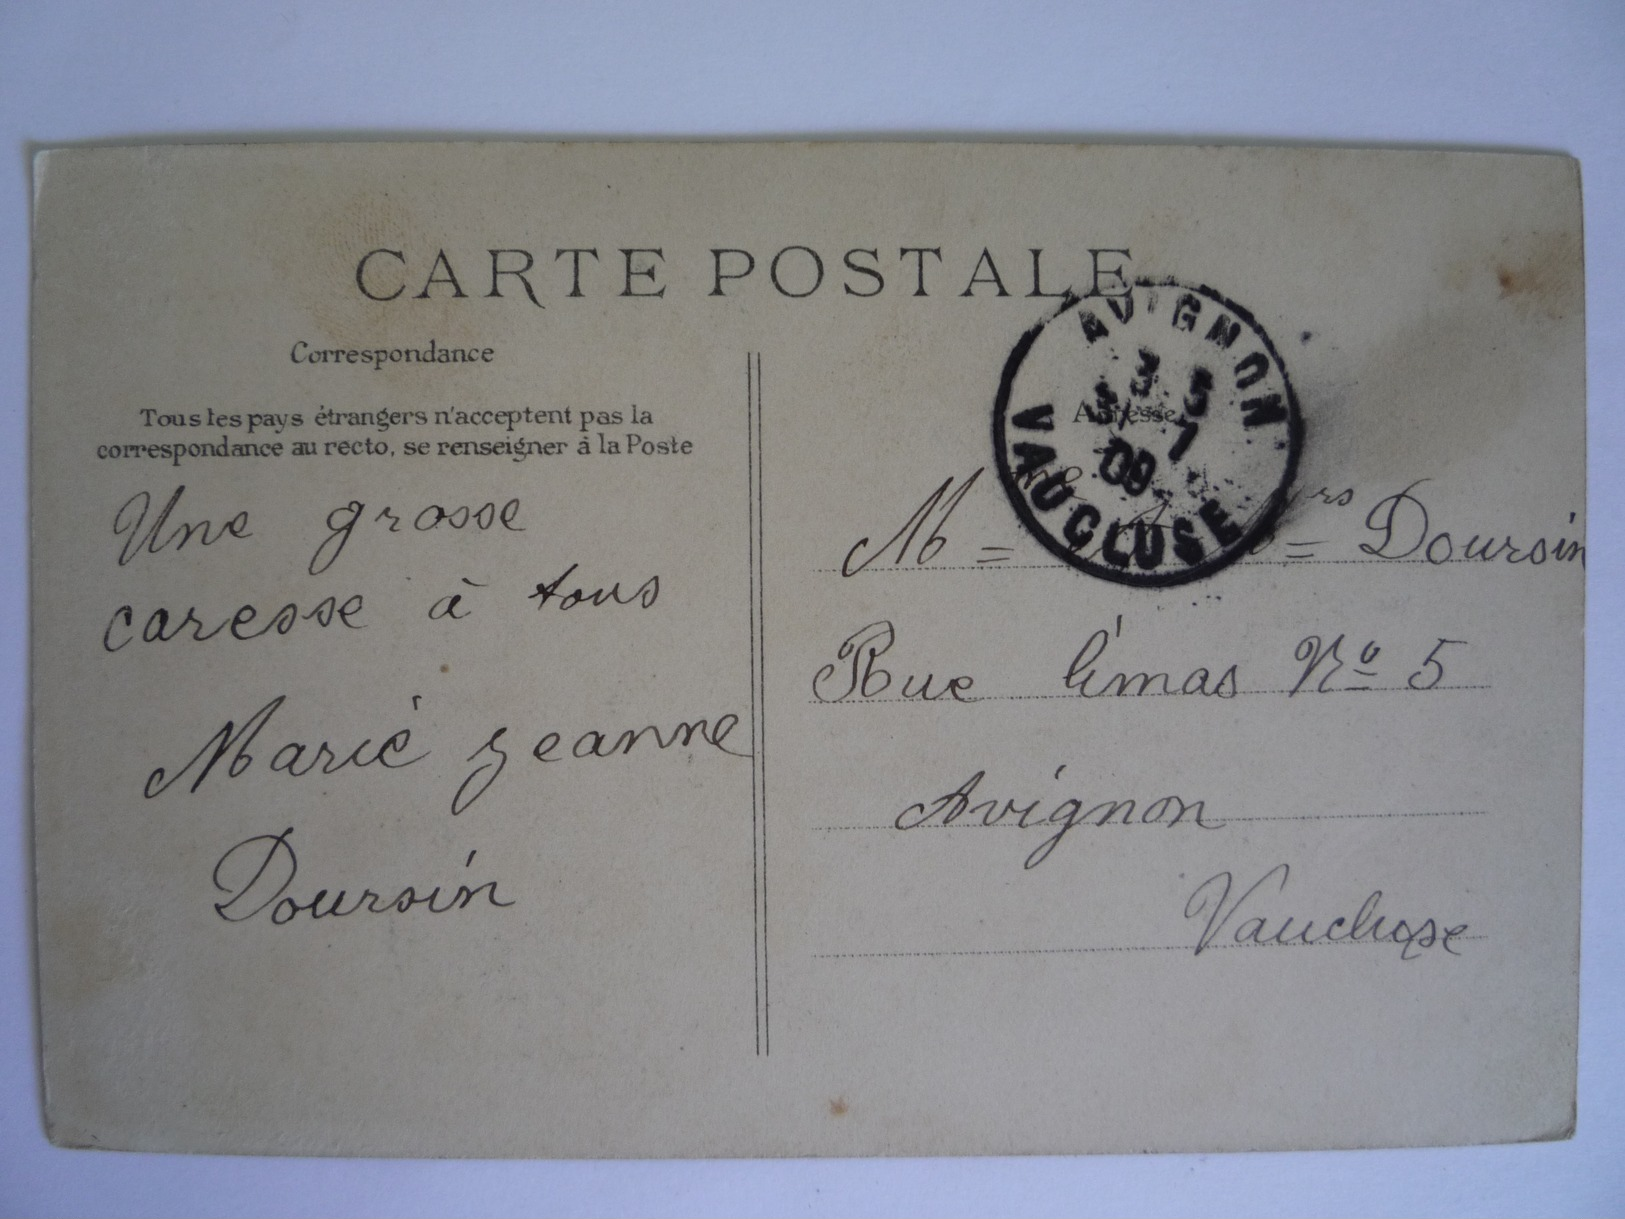 CARTE POSTALE
Correspondance
Tous les pays étrangers n'acceptent pas la
correspondance au recto, se renseigner à la Poste
Une grosse
caresse à tous
Marie Jeanne
Doursin
AVIGNON
3 5
7
09
VAUCLUSE
Adresse
M = rs = Doursin
Rue limas No 5
Avignon
Vaucluse